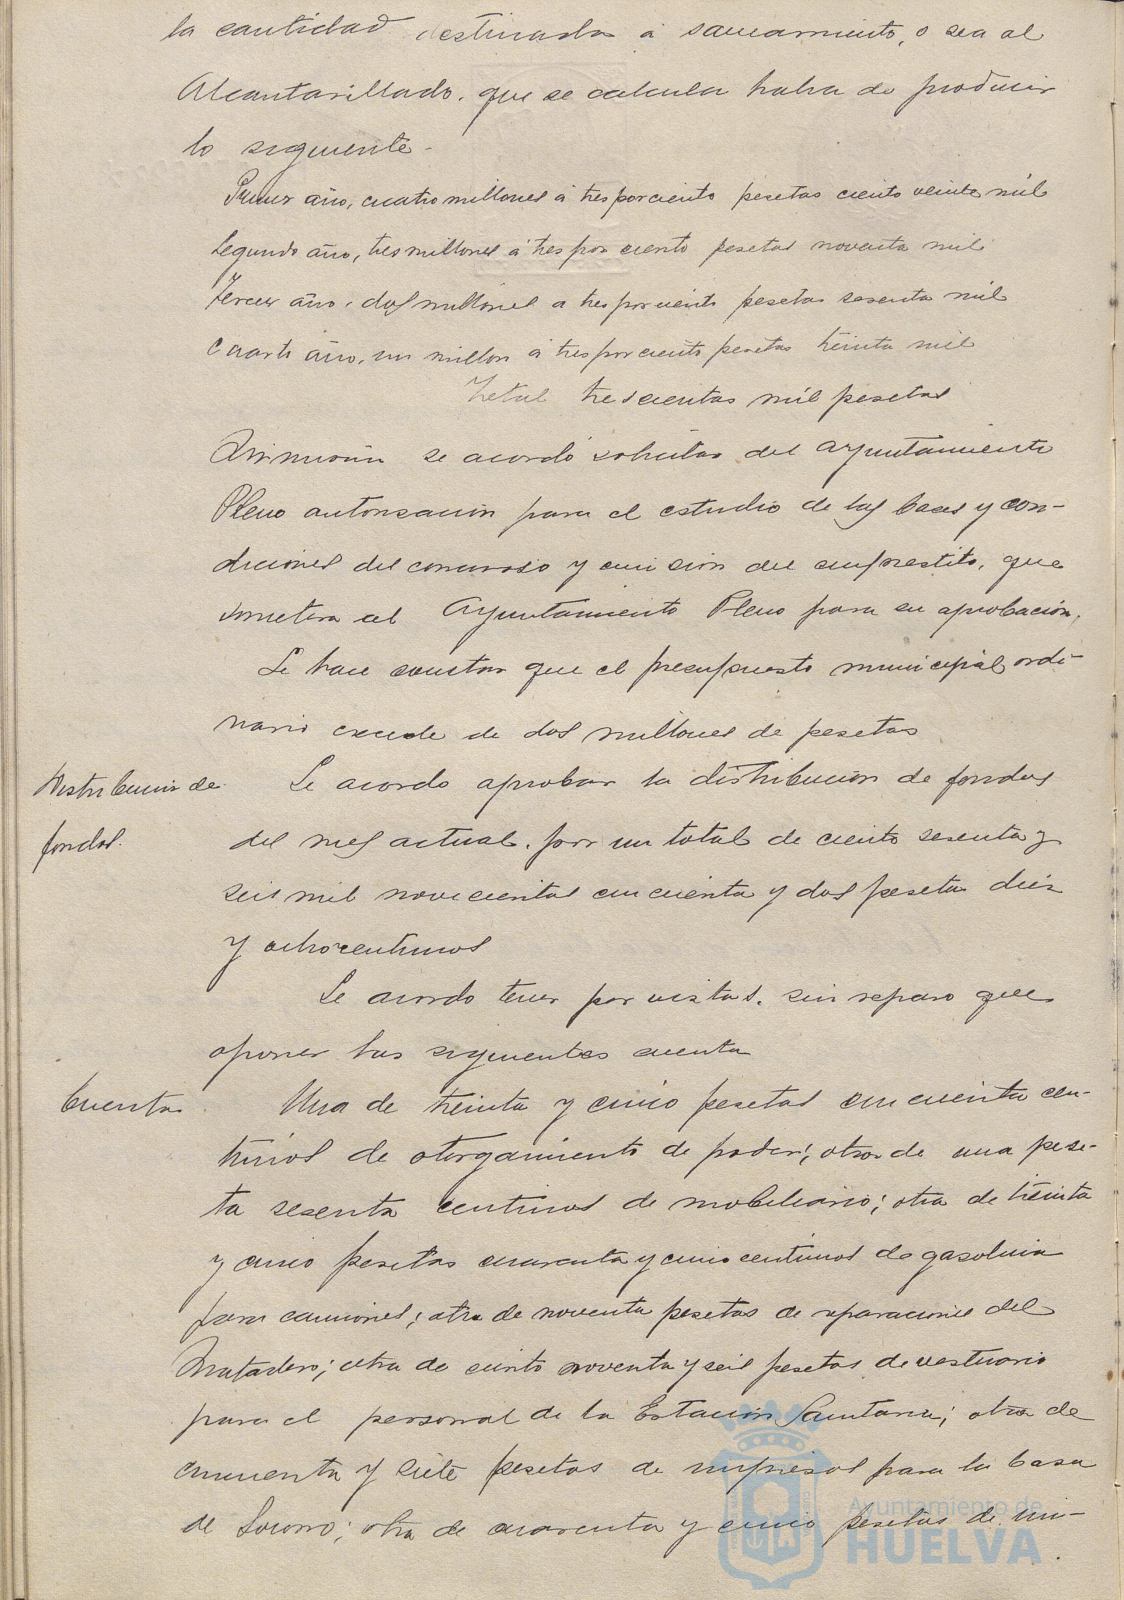 la cantidad destinada a saneamiento, o sea al
Alcantarillado, que se calcula habra de producir
lo siguiente.
Primer año, cuatro millones á tres por ciento pesetas ciento veinte mil
Segundo año, tres millones á tres por ciento pesetas noventa mil
Tercer año, dos millones a tres por ciento pesetas sesenta mil
Cuarto año, un millon á tres por ciento pesetas treinta mil
Total trescientas mil pesetas
Asimismo se acordó solicitar del Ayuntamiento
Pleno autorizacion para el estudio de las bases y con-
diciones del concurso y emision del emprestito, que
sometera al Ayuntamiento Pleno para su aprobación.
Se hace constar que el presupuesto municipal ordi-
nario excede de dos millones de pesetas
Distribucion de
fondos.
Se acordo aprobar la distribucion de fondos
del mes actual, por un total de ciento sesenta y
seis mil novecientas cincuenta y dos pesetas diez
y ocho centimos
Se acordo tener por vistas, sin reparo que
oponer las siguientes cuenta
Cuentas.
Una de treinta y cinco pesetas cincuenta cen-
timos de otorgamiento de poder; otra de una pese-
ta sesenta centimos de mobiliario; otra de treinta
y cinco pesetas cuarenta y cinco centimos de gasolina
para camiones; otra de noventa pesetas de reparaciones del
Matadero; otra de ciento noventa y seis pesetas de vestuario
para el personal de la Estacion Sanitaria; otra de
cincuenta y siete pesetas de impresos para la Casa
de Socorro; otra de cuarenta y cinco pesetas de im-
Ayuntamiento de
HUELVA